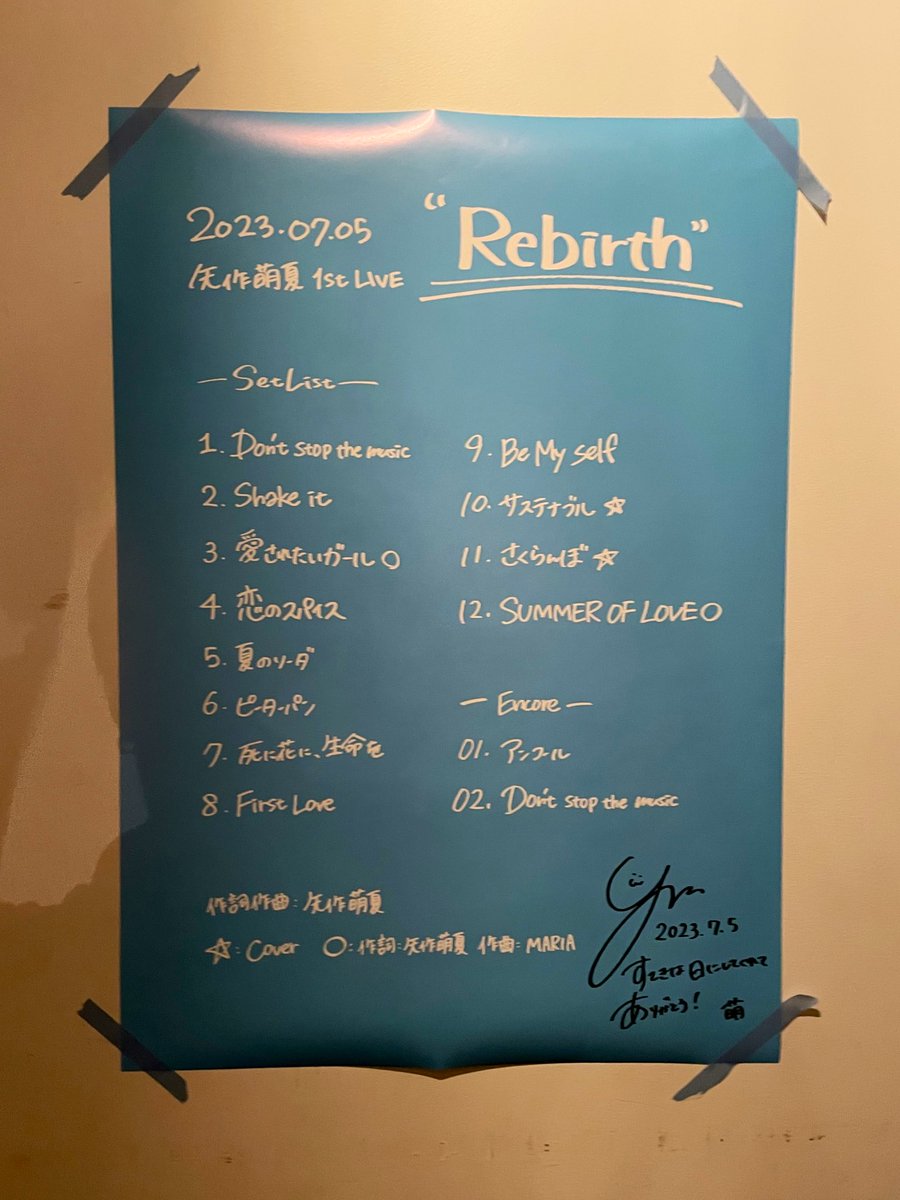 2023.07.05
矢作萌夏 1st LIVE
"Rebirth"
—SetList—
1. Don't stop the music
2. Shake it
3. 愛されたいガール○
4. 恋のスパイス
5. 夏のソーダ
6. ピーターパン
7. 死に花に、生命を
8. First Love
9. Be My self
10. サステナブル☆
11. さくらんぼ☆
12. SUMMER OF LOVE○
— Encore —
01. アンコール
02. Don't stop the music
作詞作曲:矢作萌夏
☆:Cover ○:作詞:矢作萌夏 作曲:MARIA
2023.7.5
すてきな日にしてくれて
ありがとう! 萌